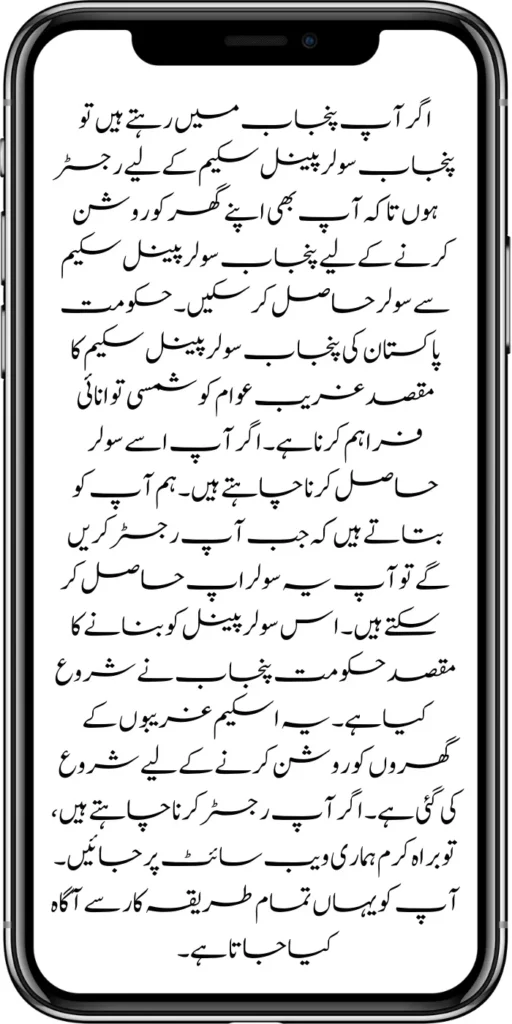 اگر آپ پنجاب میں رہتے ہیں تو
پنجاب سولر پینل سکیم کے لیے رجسٹر
ہوں تاکہ آپ بھی اپنے گھر کو روشن
کرنے کے لیے پنجاب سولر پینل سکیم
سے سولر حاصل کر سکیں۔ حکومت
پاکستان کی پنجاب سولر پینل سکیم کا
مقصد غریب عوام کو شمسی توانائی
فراہم کرنا ہے۔ اگر آپ اسے سولر
حاصل کرنا چاہتے ہیں۔ ہم آپ کو
بتاتے ہیں کہ جب آپ رجسٹر کریں
گے تو آپ یہ سولر اپ حاصل کر
سکتے ہیں۔ اس سولر پینل کو بنانے کا
مقصد حکومت پنجاب نے شروع
کیا ہے۔ یہ اسکیم غریبوں کے
گھروں کو روشن کرنے کے لیے شروع
کی گئی ہے۔ اگر آپ رجسٹر کرنا چاہتے ہیں،
تو براہ کرم ہماری ویب سائٹ پر جائیں۔
آپ کو یہاں تمام طریقہ کار سے آگاہ
کیا جاتا ہے۔